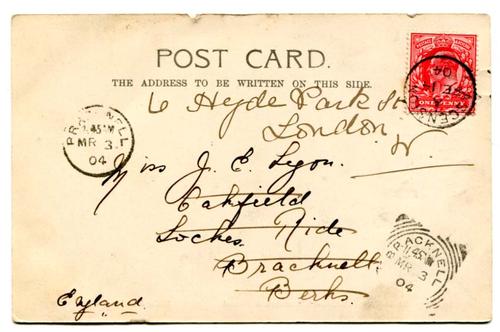 POST CARD.
THE ADDRESS TO BE WRITTEN ON THIS SIDE.
6 Hyde Park St
London W.
Miss J. E. Lyon.
Oakfield
Ride
Bracknell
Berks.
England.
BRACKNELL
11.45AM
MR 3
04
BRACKNELL
11.45AM
MR 3
04
ONE PENNY